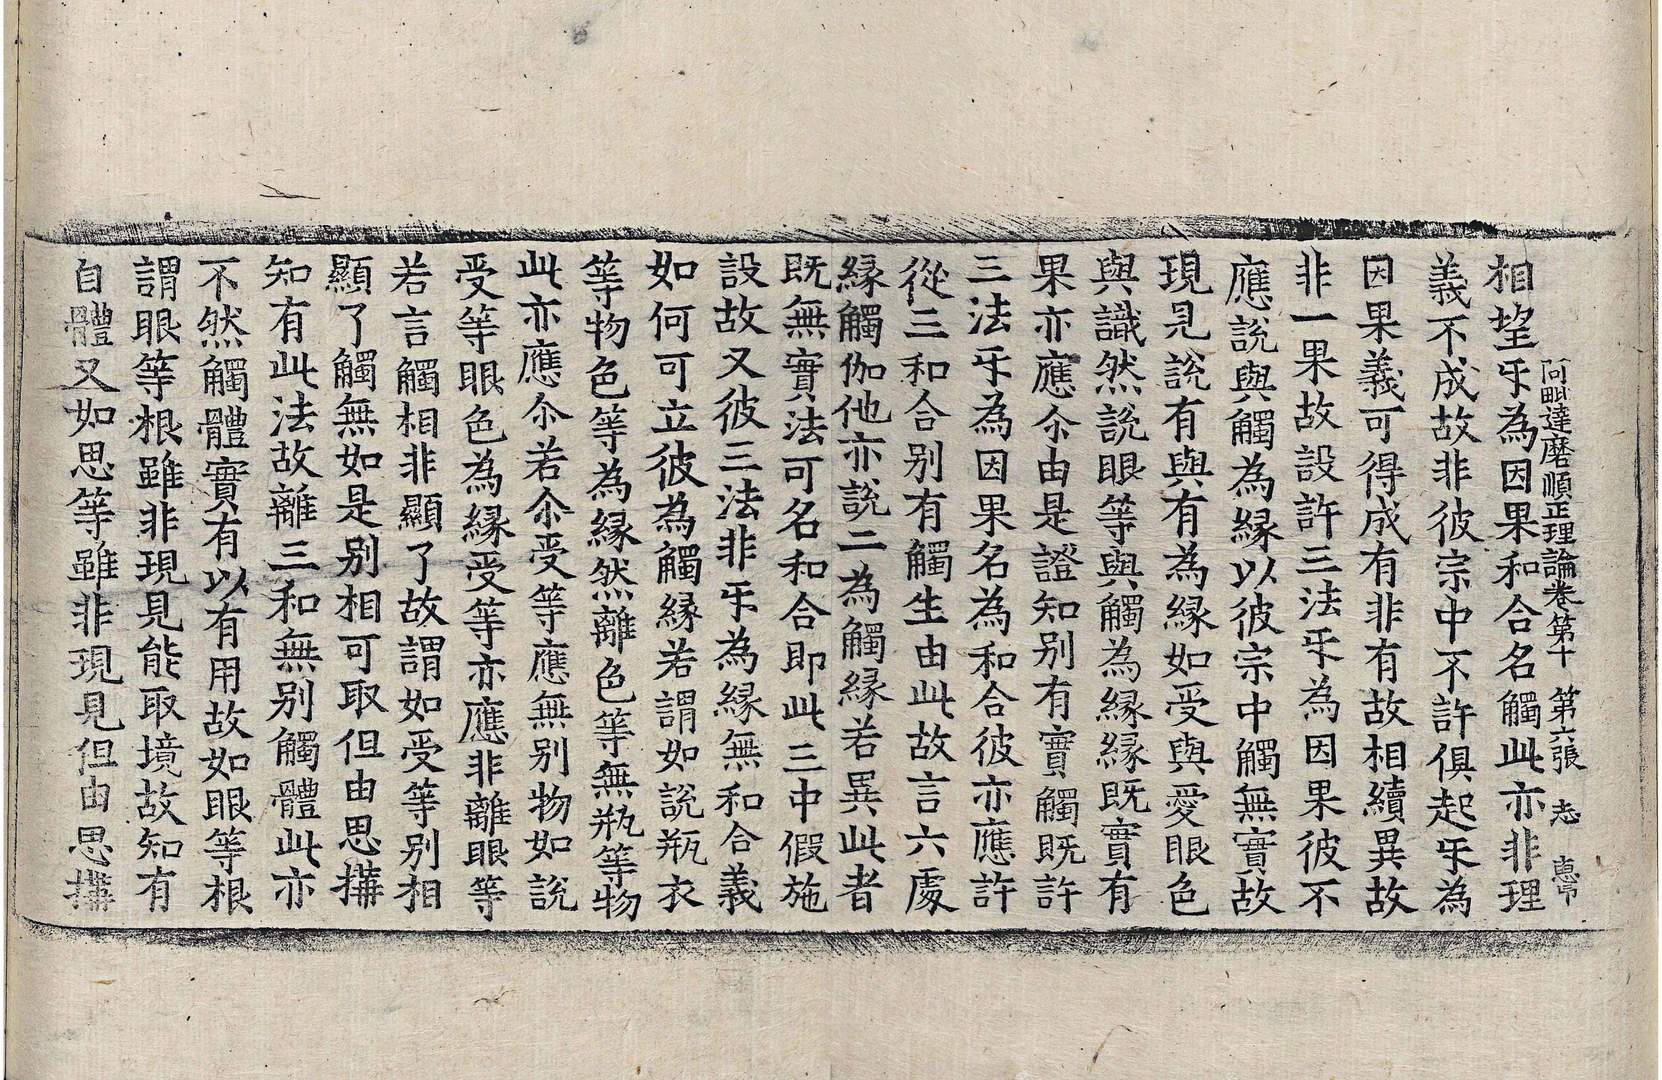 阿毗達磨順正理論卷第十 第六張 志 惠常
相望𤓰為因果和合名觸此亦非理
義不成故非彼宗中不許俱起𤓰為
因果義可得成有非有故相續異故
非一果故設許三法𤓰為因果彼不
應說與觸為緣以彼宗中觸無實故
現見說有與有為緣如受與愛眼色
與識然說眼等與觸為緣緣既實有
果亦應尒由是證知別有實觸既許
三法𤓰為因果名為和合彼亦應許
從三和合別有觸生由此故言六處
緣觸伽他亦說二為觸緣若異此者
既無實法可名和合即此三中假施
設故又彼三法非𤓰為緣無和合義
如何可立彼為觸緣若謂如說瓶衣
等物色等為緣然離色等無瓶等物
此亦應尒若尒受等應無別物如說
受等眼色為緣受等亦應非離眼等
若言觸相非顯了故謂如受等別相
顯了觸無如是別相可取但由思搆
知有此法故離三和無別觸體此亦
不然觸體實有以有用故如眼等根
謂眼等根雖非現見能取境故知有
自體又如思等雖非現見但由思搆